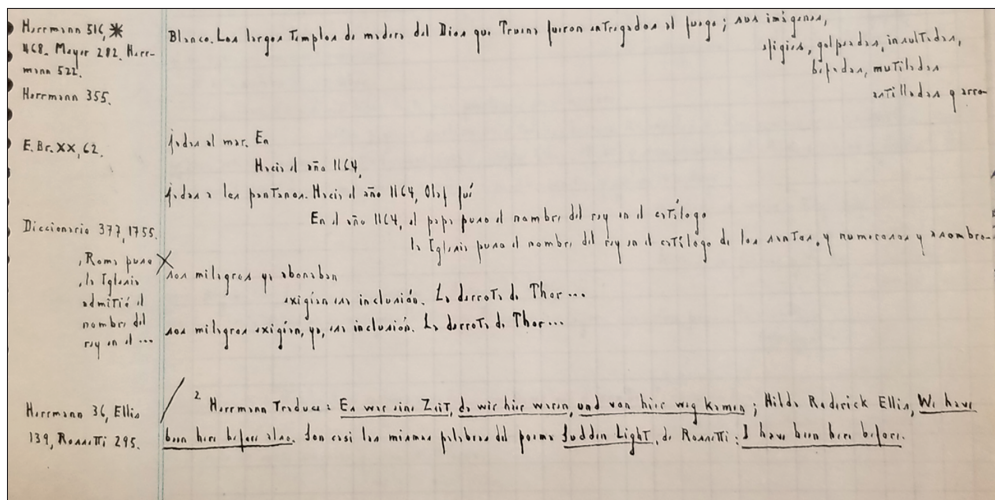 Herrmann 516, ✳
468. Meyer 282. Herr-
mann 522.
Herrmann 355.
E. Br. XX, 62.
Diccionario 377, 1755.
, Roma puso
, la Iglesia
admitió el
nombre del
rey en el ...
Herrmann 36, Ellis
139, Rossetti 295.
Blanco. Los largos templos de madera del Dios que Truena fueron entregados al fuego; sus imágenes,
efigies, golpeadas, insultadas,
befadas, mutiladas
astilladas y arro-
jadas al mar. En
Hacia el año 1164,
jadas a los pantanos. Hacia el año 1164, Olaf fué
En el año 1164, el papa puso el nombre del rey en el catálogo
la Iglesia puso el nombre del rey en el catálogo de los santos, y numerosos y asombro-
sos milagros ya abonaban
exigían esa inclusión. La derrota de Thor ...
sos milagros exigían, ya, esa inclusión. La derrota de Thor ...
2 Herrmann traduce: Es war eine Zeit, da wir hier waren, und von hier weg kamen; Hilda Roderick Ellis, We have
been here before also. Son casi las mismas palabras del poema Sudden Light, de Rossetti: I have been here before.